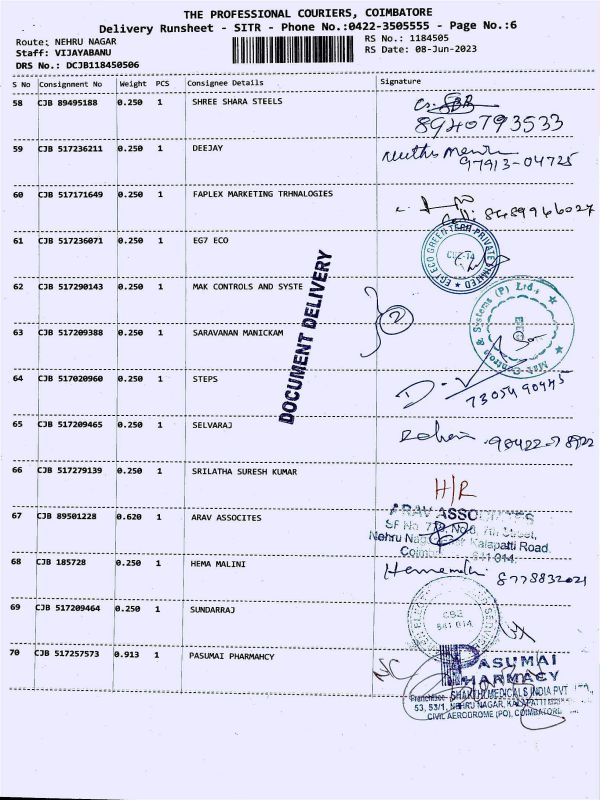 THE PROFESSIONAL COURIERS, COIMBATORE
Delivery Runsheet - SITR - Phone No.:0422-3505555 - Page No.:6
Route: NEHRU NAGAR
Staff: VIJAYABANU
DRS No.: DCJB118450506
RS No.: 1184505
RS Date: 08-Jun-2023
S No Consignment No Weight PCS Consignee Details Signature
58 CJB 89495188 0.250 1 SHREE SHARA STEELS
8940793533
59 CJB 517236211 0.250 1 DEEJAY
97913-04725
60 CJB 517171649 0.250 1 FAPLEX MARKETING TRHNALOGIES
8489966027
61 CJB 517236071 0.250 1 EG7 ECO
EG7 ECO GREEN TERR PRIVATE LIMITED
62 CJB 517290143 0.250 1 MAK CONTROLS AND SYSTE
2
Mak Controls & Systems (P) Ltd.,
DOCUMENT DELIVERY
63 CJB 517209388 0.250 1 SARAVANAN MANICKAM
64 CJB 517020960 0.250 1 STEPS
7305490945
65 CJB 517209465 0.250 1 SELVARAJ
66 CJB 517279139 0.250 1 SRILATHA SURESH KUMAR
H/R
67 CJB 89501228 0.620 1 ARAV ASSOCITES
ARAV ASSOCIATES
Nehru Nagar Kalapatti Road
641 014.
68 CJB 185728 0.250 1 HEMA MALINI
8778832021
69 CJB 517209464 0.250 1 SUNDARRAJ
641 014
70 CJB 517257573 0.913 1 PASUMAI PHARMAHCY
NC
PASUMAI
PHARMACY
Franchisee SHAKTHI MEDICALS INDIA PVT
53, 53/1, NEHRU NAGAR, KALAPATTI
CIVIL AERODROME (PO), COIMBATORE